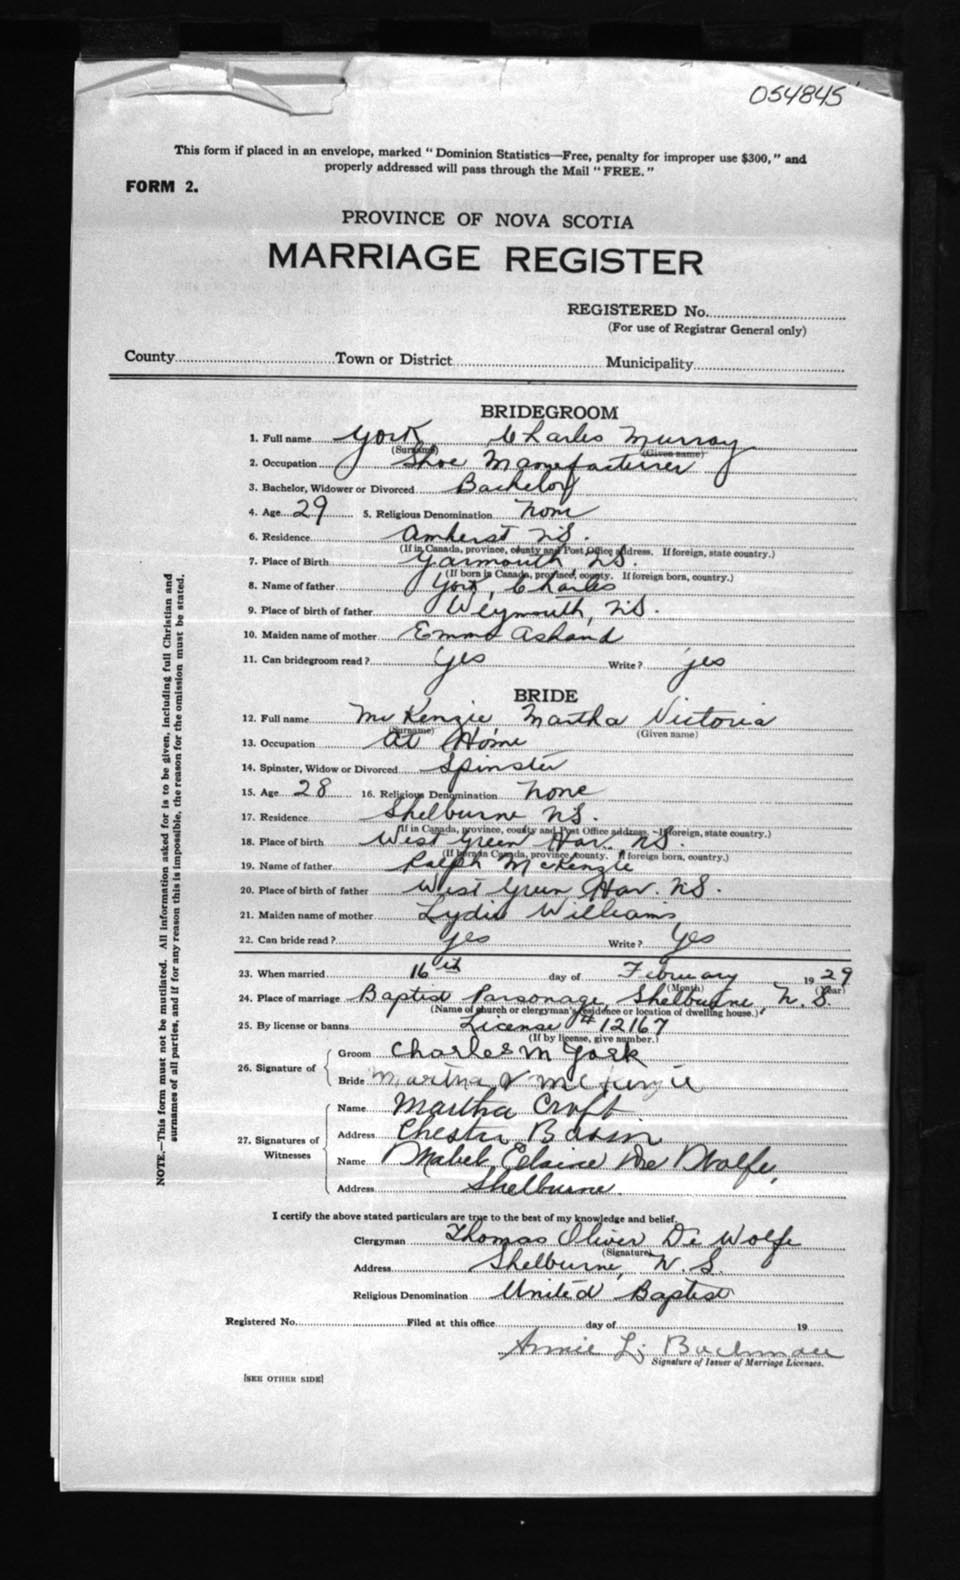 054845
This form if placed in an envelope, marked "Dominion Statistics—Free, penalty for improper use $300," and
properly addressed will pass through the Mail "FREE."
FORM 2.
PROVINCE OF NOVA SCOTIA
MARRIAGE REGISTER
REGISTERED No.
(For use of Registrar General only)
County Town or District Municipality
BRIDEGROOM
1. Full name York Charles Murray
(Surname) (Given name)
2. Occupation Shoe Manufacturer
3. Bachelor, Widower or Divorced Bachelor
4. Age 29 5. Religious Denomination None
6. Residence Amherst N.S.
(If in Canada, province, county and Post Office address. If foreign, state country.)
7. Place of Birth Yarmouth, N.S.
(If born in Canada, province, county. If foreign born, country.)
8. Name of father York, Charles
9. Place of birth of father Weymouth, N.S.
10. Maiden name of mother Emma
11. Can bridegroom read? Yes Write? yes
BRIDE
12. Full name McKenzie Martha Victoria
(Surname) (Given name)
13. Occupation At Home
14. Spinster, Widow or Divorced Spinster
15. Age 28 16. Religious Denomination None
17. Residence Shelburne N.S.
(If in Canada, province, county and Post Office address. If foreign, state country.)
18. Place of birth West Green Har. N.S.
(If born in Canada, province, county. If foreign born, country.)
19. Name of father Ralph McKenzie
20. Place of birth of father West Green Har. N.S.
21. Maiden name of mother Lydia Williams
22. Can bride read? yes Write? Yes
23. When married 16th day of February 1929
(Month) (Year)
24. Place of marriage Baptist Parsonage, Shelburne, N.S.
(Name of church or clergyman's residence or location of dwelling house.)
25. By license or banns License #12167
(If by license, give number.)
26. Signature of
Groom Charles M York
Bride Martha V McKenzie
27. Signatures of Witnesses
Name Martha Croft
Address Chester Basin
Name Mabel Elaine De Wolfe,
Address Shelburne.
I certify the above stated particulars are true to the best of my knowledge and belief.
Clergyman Thomas Oliver De Wolfe
(Signature)
Address Shelburne, N.S.
Religious Denomination United Baptist
Registered No. Filed at this office day of 19
Annie L.
Signature of Issuer of Marriage Licenses.
[SEE OTHER SIDE]
NOTE.—This form must not be mutilated. All information asked for is to be given, including full Christian and
surnames of all parties, and if for any reason this is impossible, the reason for the omission must be stated.